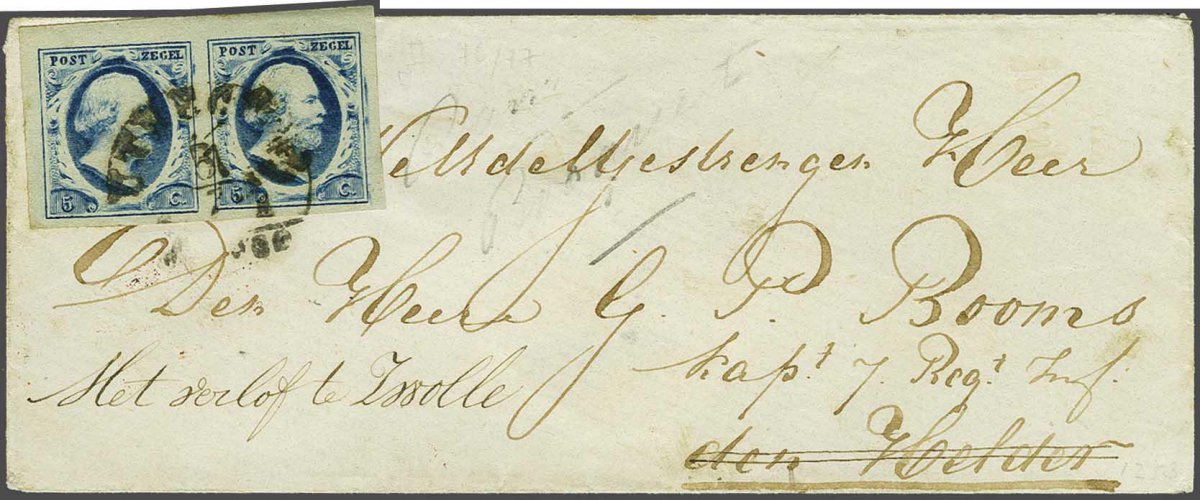 POST ZEGEL POST ZEGEL
5 C. 5 C.
UTRECHT
Heer
Den Heere G. P. Booms
kapt 7 Regt Inf.
Met verlof te Zwolle
den Helder